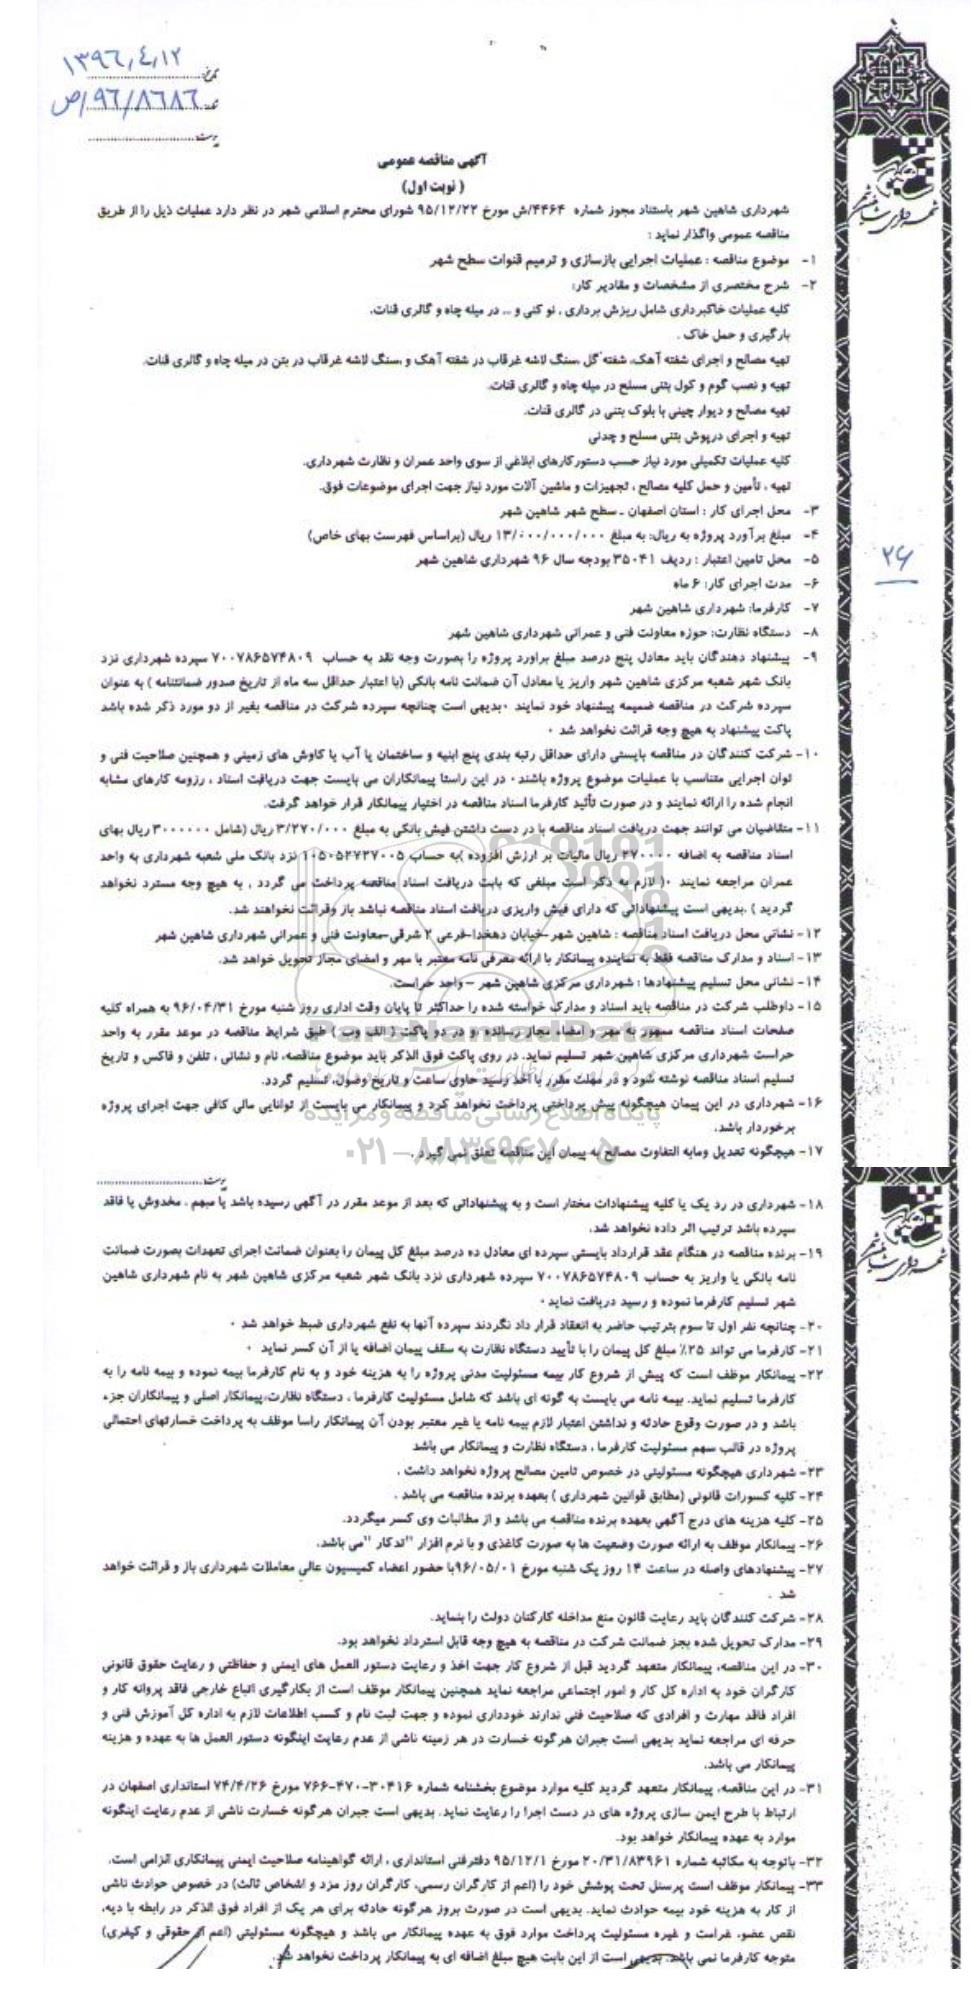 تاریخ: ۱۳۹۶,٤,۱۲
۹۶/۸۶۸۶/ص
پیوست
آگهی مناقصه عمومی
( نوبت اول)
شهرداری شاهین شهر باستناد مجوز شماره ۴۴۶۴/ش مورخ ۹۵/۱۲/۲۲ شورای محترم اسلامی شهر در نظر دارد عملیات ذیل را از طریق
مناقصه عمومی واگذار نماید :
۱- موضوع مناقصه : عملیات اجرایی بازسازی و ترمیم قنوات سطح شهر
۲- شرح مختصری از مشخصات و مقادیر کار:
کلیه عملیات خاکبرداری شامل ریزش برداری ، نو کنی و ... در میله چاه و گالری قنات.
بارگیری و حمل خاک .
تهیه مصالح و اجرای شفته آهک، شفته گل ،سنگ لاشه غرقاب در شفته آهک و ،سنگ لاشه غرقاب در بتن در میله چاه و گالری قنات.
تهیه و نصب گوم و کول بتنی مسلح در میله چاه و گالری قنات.
تهیه مصالح و دیوار چینی با بلوک بتنی در گالری قنات.
تهیه و اجرای درپوش بتنی مسلح و چدنی
کلیه عملیات تکمیلی مورد نیاز حسب دستورکارهای ابلاغی از سوی واحد عمران و نظارت شهرداری.
تهیه ، تأمین و حمل کلیه مصالح ، تجهیزات و ماشین آلات مورد نیاز جهت اجرای موضوعات فوق.
۳- محل اجرای کار : استان اصفهان ـ سطح شهر شاهین شهر
۴- مبلغ برآورد پروژه به ریال: به مبلغ ۱۳/۰۰۰/۰۰۰/۰۰۰ ریال (براساس فهرست بهای خاص)
۵- محل تامین اعتبار : ردیف ۳۵۰۴۱ بودجه سال ۹۶ شهرداری شاهین شهر
۶- مدت اجرای کار: ۶ ماه
۷- کارفرما: شهرداری شاهین شهر
۸- دستگاه نظارت: حوزه معاونت فنی و عمرانی شهرداری شاهین شهر
۹- پیشنهاد دهندگان باید معادل پنج درصد مبلغ براورد پروژه را بصورت وجه نقد به حساب ۷۰۰۷۸۶۵۷۴۸۰۹ سپرده شهرداری نزد
بانک شهر شعبه مرکزی شاهین شهر واریز یا معادل آن ضمانت نامه بانکی (با اعتبار حداقل سه ماه از تاریخ صدور ضمانتنامه ) به عنوان
سپرده شرکت در مناقصه ضمیمه پیشنهاد خود نمایند ۰بدیهی است چنانچه سپرده شرکت در مناقصه بغیر از دو مورد ذکر شده باشد
پاکت پیشنهاد به هیچ وجه قرائت نخواهد شد ۰
۱۰- شرکت کنندگان در مناقصه بایستی دارای حداقل رتبه بندی پنج ابنیه و ساختمان یا آب یا کاوش های زمینی و همچنین صلاحیت فنی و
توان اجرایی متناسب با عملیات موضوع پروژه باشند۰ در این راستا پیمانکاران می بایست جهت دریافت اسناد ، رزومه کارهای مشابه
انجام شده را ارائه نمایند و در صورت تأئید کارفرما اسناد مناقصه در اختیار پیمانکار قرار خواهد گرفت.
۱۱- متقاضیان می توانند جهت دریافت اسناد مناقصه با در دست داشتن فیش بانکی به مبلغ ۳/۲۷۰/۰۰۰ ریال (شامل ۳۰۰۰۰۰۰ ریال بهای
اسناد مناقصه به اضافه ۲۷۰۰۰۰ ریال مالیات بر ارزش افزوده )به حساب ۱۰۵۰۵۲۷۲۷۰۰۵ نزد بانک ملی شعبه شهرداری به واحد
عمران مراجعه نمایند ۰( لازم به ذکر است مبلغی که بابت دریافت اسناد مناقصه پرداخت می گردد ، به هیچ وجه مسترد نخواهد
گردید ) .بدیهی است پیشنهاداتی که دارای فیش واریزی دریافت اسناد مناقصه نباشد باز وقرائت نخواهند شد.
۱۲- نشانی محل دریافت اسناد مناقصه : شاهین شهر -خیابان دهخدا-فرعی ۲ شرقی-معاونت فنی و عمرانی شهرداری شاهین شهر
۱۳- اسناد و مدارک مناقصه فقط به نماینده پیمانکار با ارائه معرفی نامه معتبر با مهر و امضای مجاز تحویل خواهد شد.
۱۴- نشانی محل تسلیم پیشنهادها : شهرداری مرکزی شاهین شهر – واحد حراست.
۱۵- داوطلب شرکت در مناقصه باید اسناد و مدارک خواسته شده را حداکثر تا پایان وقت اداری روز شنبه مورخ ۹۶/۰۴/۳۱ به همراه کلیه
صفحات اسناد مناقصه ممهور به مهر و امضاء مجاز رسانده و در دو پاکت ( الف وب ) طبق شرایط مناقصه در موعد مقرر به واحد
حراست شهرداری مرکزی شاهین شهر تسلیم نماید. در روی پاکت فوق الذکر باید موضوع مناقصه، نام و نشانی ، تلفن و فاکس و تاریخ
تسلیم اسناد مناقصه نوشته شود و در مهلت مقرر با اخذ رسید حاوی ساعت و تاریخ وصول، تسلیم گردد.
۱۶- شهرداری در این پیمان هیچگونه پیش پرداختی پرداخت نخواهد کرد و پیمانکار می بایست از توانایی مالی کافی جهت اجرای پروژه
برخوردار باشد.
۱۷- هیچگونه تعدیل ومابه التفاوت مصالح به پیمان این مناقصه تعلق نمی گیرد .
ParsNamadData
پایگاه اطلاع رسانی مناقصه و مزایده
۰۲۱-۸۸۳٤۹۶۷۰-۵
۲۶
پیوست
۱۸- شهرداری در رد یک یا کلیه پیشنهادات مختار است و به پیشنهاداتی که بعد از موعد مقرر در آگهی رسیده باشد یا مبهم ، مخدوش یا فاقد
سپرده باشد ترتیب اثر داده نخواهد شد.
۱۹- برنده مناقصه در هنگام عقد قرارداد بایستی سپرده ای معادل ده درصد مبلغ کل پیمان را بعنوان ضمانت اجرای تعهدات بصورت ضمانت
نامه بانکی یا واریز به حساب ۷۰۰۷۸۶۵۷۴۸۰۹ سپرده شهرداری نزد بانک شهر شعبه مرکزی شاهین شهر به نام شهرداری شاهین
شهر تسلیم کارفرما نموده و رسید دریافت نماید۰
۲۰- چنانچه نفر اول تا سوم بترتیب حاضر به انعقاد قرار داد نگردند سپرده آنها به نفع شهرداری ضبط خواهد شد ۰
۲۱- کارفرما می تواند ۲۵٪ مبلغ کل پیمان را با تأیید دستگاه نظارت به سقف پیمان اضافه یا از آن کسر نماید ۰
۲۲- پیمانکار موظف است که پیش از شروع کار بیمه مسئولیت مدنی پروژه را به هزینه خود و به نام کارفرما بیمه نموده و بیمه نامه را به
کارفرما تسلیم نماید. بیمه نامه می بایست به گونه ای باشد که شامل مسئولیت کارفرما ، دستگاه نظارت،پیمانکار اصلی و پیمانکاران جزء
باشد و در صورت وقوع حادثه و نداشتن اعتبار لازم بیمه نامه یا غیر معتبر بودن آن پیمانکار راسا موظف به پرداخت خسارتهای احتمالی
پروژه در قالب سهم مسئولیت کارفرما ، دستگاه نظارت و پیمانکار می باشد
۲۳- شهرداری هیچگونه مسئولیتی در خصوص تامین مصالح پروژه نخواهد داشت .
۲۴- کلیه کسورات قانونی (مطابق قوانین شهرداری ) بعهده برنده مناقصه می باشد .
۲۵- کلیه هزینه های درج آگهی بعهده برنده مناقصه می باشد و از مطالبات وی کسر میگردد.
۲۶- پیمانکار موظف به ارائه صورت وضعیت ها به صورت کاغذی و با نرم افزار "تدکار "می باشد.
۲۷- پیشنهادهای واصله در ساعت ۱۴ روز یک شنبه مورخ ۹۶/۰۵/۰۱با حضور اعضاء کمیسیون عالی معاملات شهرداری باز و قرائت خواهد
شد .
۲۸- شرکت کنندگان باید رعایت قانون منع مداخله کارکنان دولت را بنماید.
۲۹- مدارک تحویل شده بجز ضمانت شرکت در مناقصه به هیچ وجه قابل استرداد نخواهد بود.
۳۰- در این مناقصه، پیمانکار متعهد گردید قبل از شروع کار جهت اخذ و رعایت دستور العمل های ایمنی و حفاظتی و رعایت حقوق قانونی
کارگران خود به اداره کل کار و امور اجتماعی مراجعه نماید همچنین پیمانکار موظف است از بکارگیری اتباع خارجی فاقد پروانه کار و
افراد فاقد مهارت و افرادی که صلاحیت فنی ندارند خودداری نموده و جهت ثبت نام و کسب اطلاعات لازم به اداره کل آموزش فنی و
حرفه ای مراجعه نماید بدیهی است جبران هرگونه خسارت در هر زمینه ناشی از عدم رعایت اینگونه دستور العمل ها به عهده و هزینه
پیمانکار می باشد.
۳۱- در این مناقصه، پیمانکار متعهد گردید کلیه موارد موضوع بخشنامه شماره ۳۰۴۱۶-۴۷۰-۷۶۶ مورخ ۷۴/۴/۲۶ استانداری اصفهان در
ارتباط با طرح ایمن سازی پروژه های در دست اجرا را رعایت نماید. بدیهی است جبران هرگونه خسارت ناشی از عدم رعایت اینگونه
موارد به عهده پیمانکار خواهد بود.
۳۲- باتوجه به مکاتبه شماره ۲۰/۳۱/۸۳۹۶۱ مورخ ۹۵/۱۲/۱ دفترفنی استانداری ، ارائه گواهینامه صلاحیت ایمنی پیمانکاری الزامی است.
۳۳- پیمانکار موظف است پرسنل تحت پوشش خود را (اعم از کارگران رسمی، کارگران روز مزد و اشخاص ثالث) در خصوص حوادث ناشی
از کار به هزینه خود بیمه حوادث نماید. بدیهی است در صورت بروز هرگونه حادثه برای هر یک از افراد فوق الذکر در رابطه با دیه،
نقص عضو، غرامت و غیره مسئولیت پرداخت موارد فوق به عهده پیمانکار می باشد و هیچگونه مسئولیتی (اعم از حقوقی و کیفری)
متوجه کارفرما نمی باشد. بدیهی است از این بابت هیچ مبلغ اضافه ای به پیمانکار پرداخت نخواهد شد.